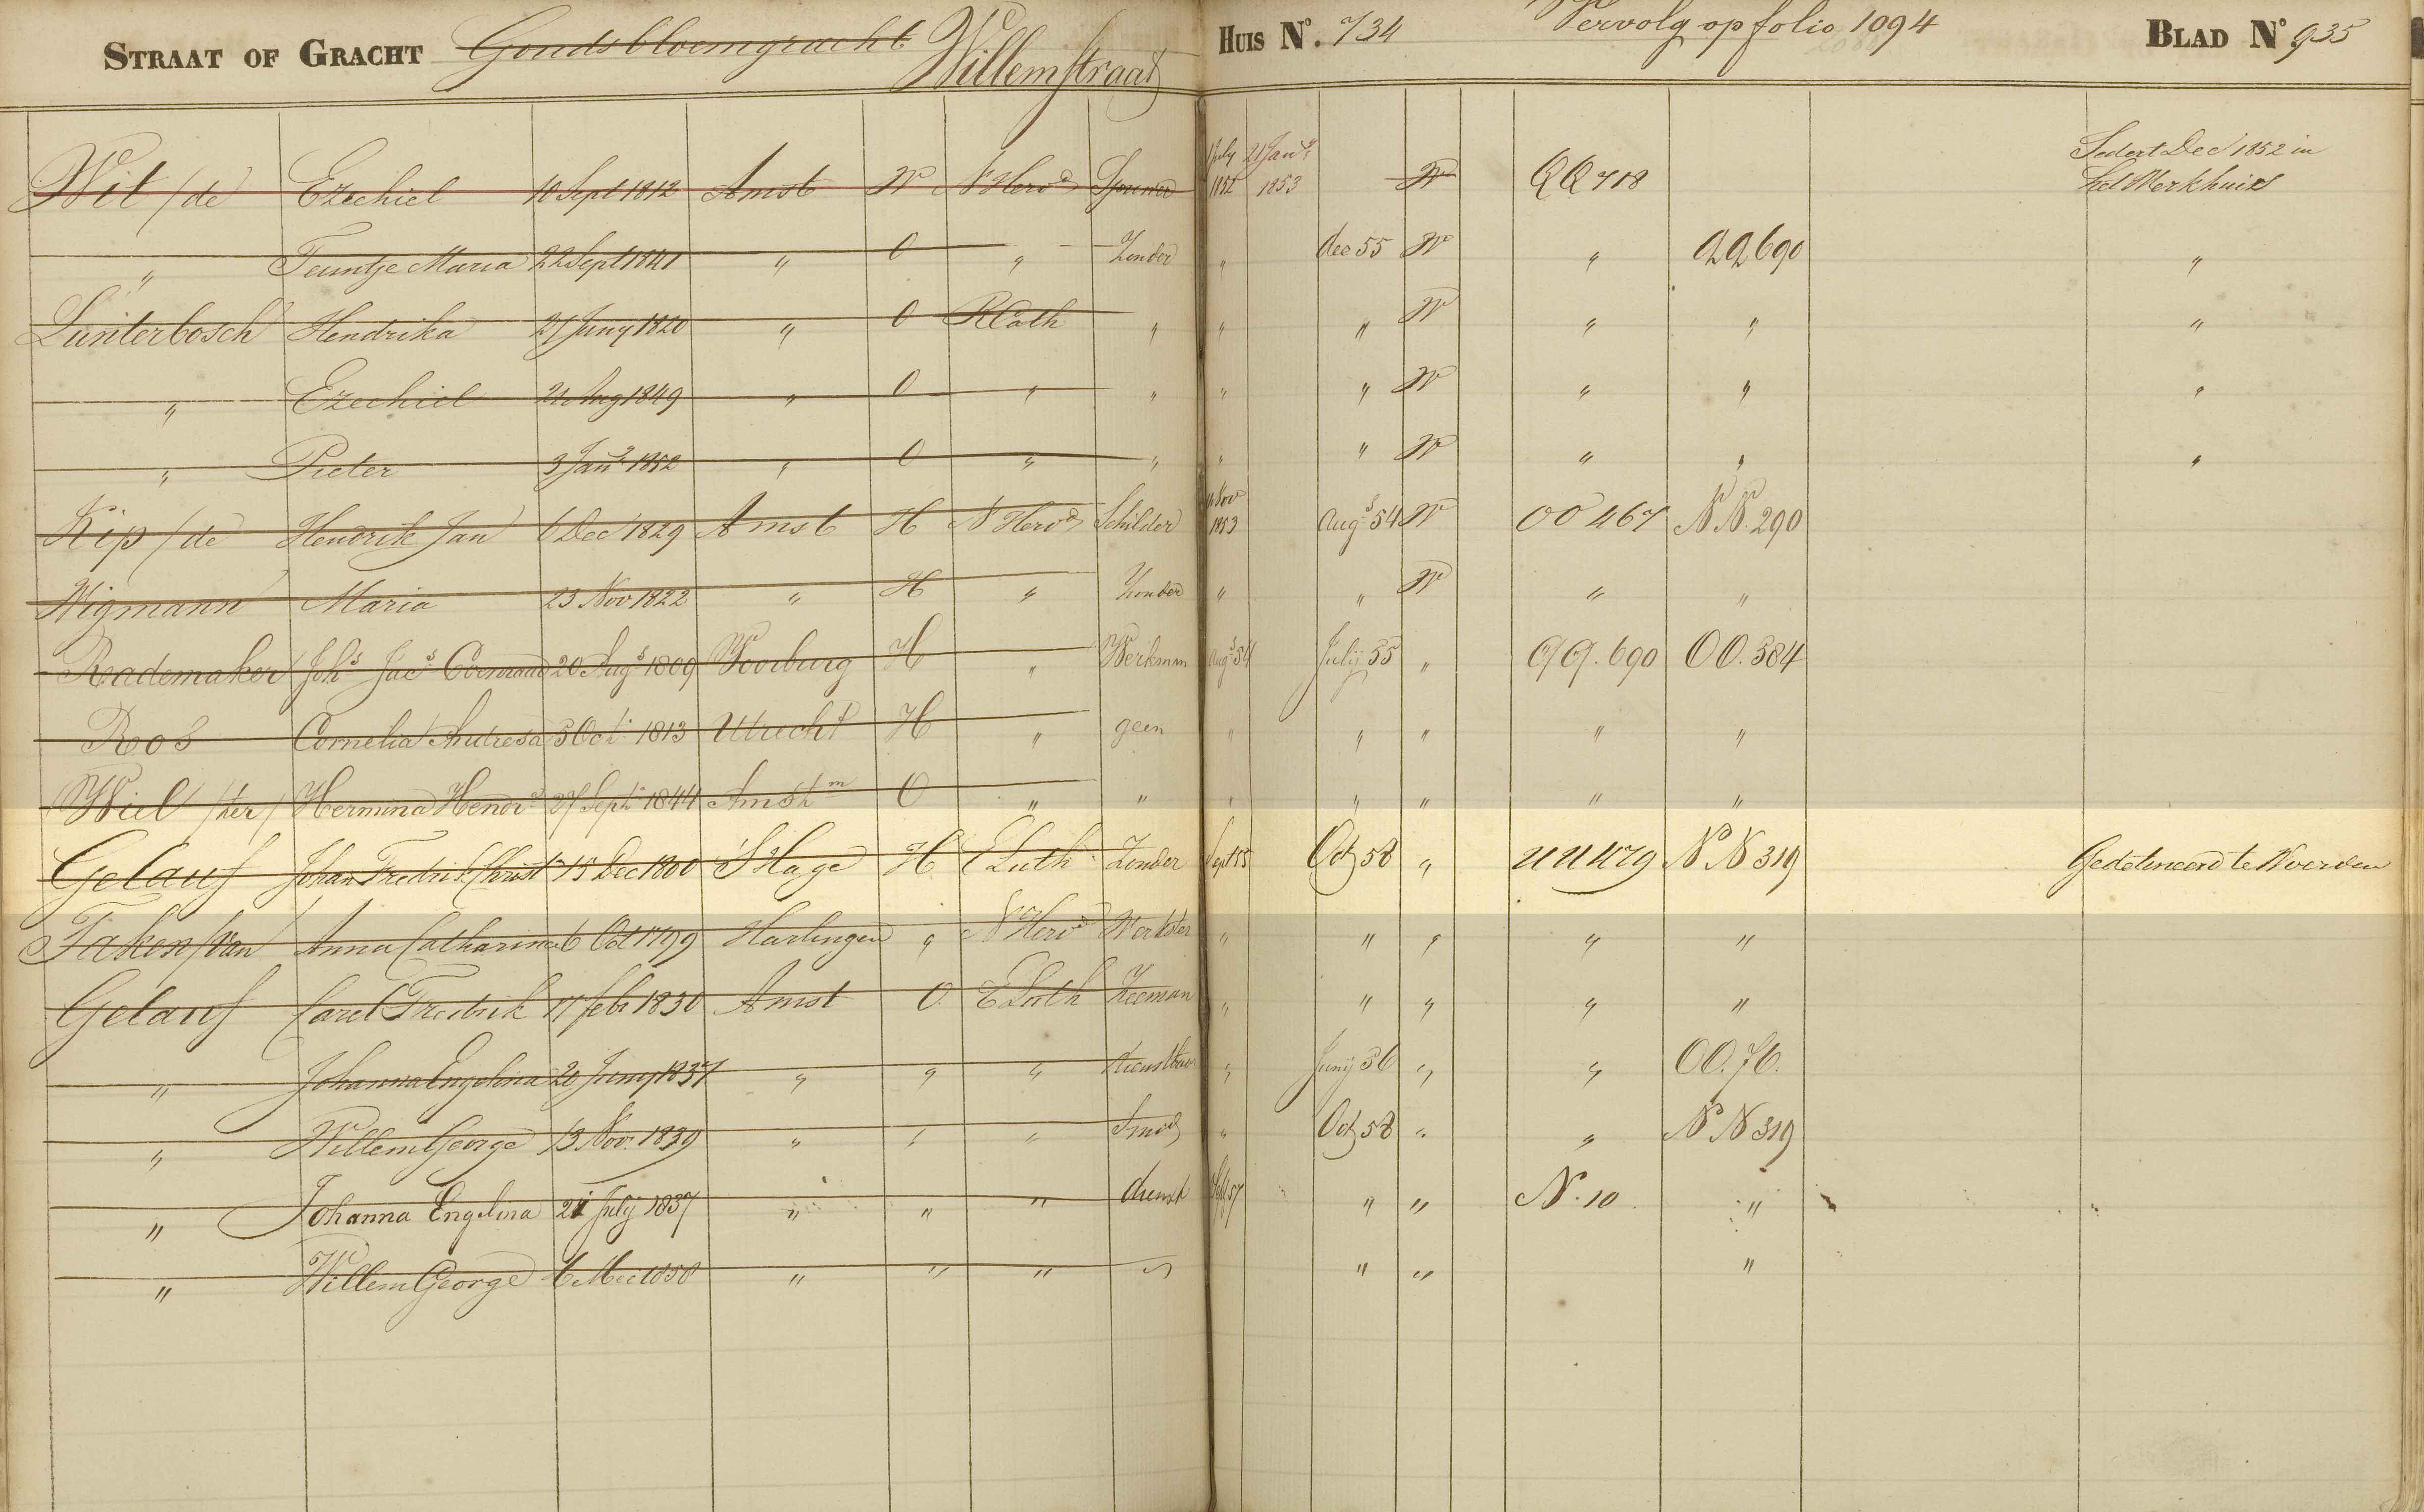 STRAAT OF GRACHT Goudsbloemgracht Willemstraat HUIS No. 734 Vervolg op folio 1094 BLAD No 935
Wit /de Ezechiel 10 Sept 1812 Amst W N Hervd July 1852 21 Jany 1853 W QQ 718 Sedert Dec 1852 in het Werkhuis
" Teuntje Maria 22 Sept 1841 " O " Zonder " dec 55 W " QQ 690 "
Lunterbosch Hendrika 21 Juny 1820 " O R Cath " " " W " " "
" Ezechiel 24 Aug 1849 " O " " " " W " " "
" Pieter 3 Jany 1852 " O " " " " W " " "
Kip /de Hendrik Jan 6 Dec 1829 Amst H N Hervd Schilder Nov 1853 Augs 54 W OO 467 NN. 290
Wigmann Maria 23 Nov 1822 " H " Zonder " " W " "
Rademaker Johs Jacs Coenraad 20 Augs 1809 Voorburg H " Werkman Augs 54 July 55 " QQ. 690 OO. 384
Ros Cornelia Andresa 3 Oct 1813 Utrecht H " geen " " " " "
Wiel /ter/ Hermina Hendra 27 Sept 1844 Amstm O " " " " " " "
Gelauf Johan Fredrik Christn 15 Dec 1800 S Hage H E Luth Zonder Sept 55 Oct 58 " UU 479 NN 319 Gedetineerd te Woerden
Faken /van Anna Catharina 6 Oct 1799 Harlingen " N Hervd Werkster " " " " "
Gelauf Carel Fredrik 17 febr 1830 Amst O E Luth Zeeman " " " " "
" Johanna Engelina 20 Juny 1837 " " " dienstbaar " Juny 56 " " OO. 76.
" Willem George 13 Nov. 1839 " " " Smid " Oct 58 " " NN 319
" Johanna Engelina 21 July 1837 " " " dienst 57 " " N. 10 "
" Willem George 6 Mei 1858 " " " " " " "